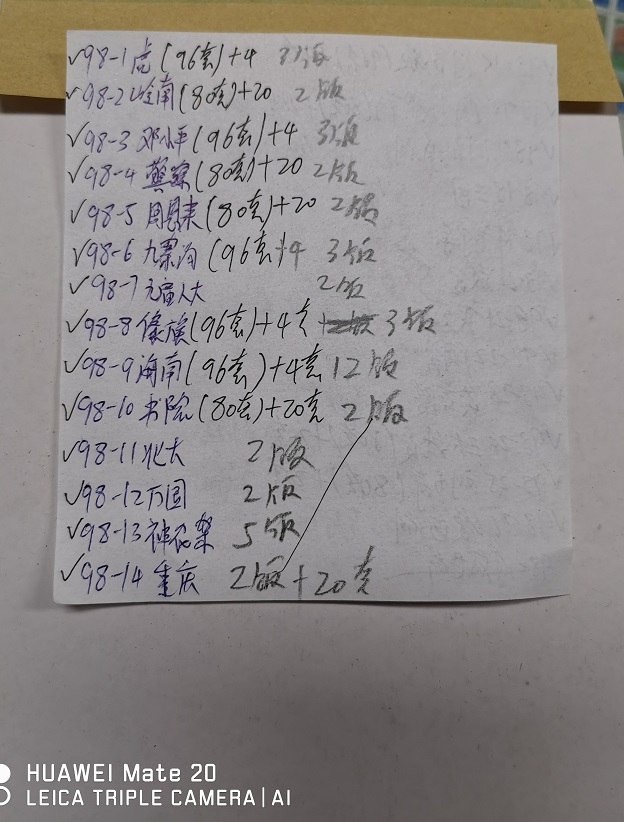 ✓98-1虎(96套)+4 3版
✓98-2岭南(80套)+20 2版
✓98-3邓小平(96套)+4 3版
✓98-4 (80套)+20 2版
✓98-5周恩来(80套)+20 2版
✓98-6九寨沟(96套)+4 3版
✓98-7九届人大 2版
✓98-8傣族(96套)+4套 3版
✓98-9海南(96套)+4套 12版
✓98-10书院(80套)+20套 2版
✓98-11北大 2版
✓98-12万国 2版
✓98-13神农架 5版
✓98-14重庆 2版+20套
HUAWEI Mate 20
LEICA TRIPLE CAMERA | AI